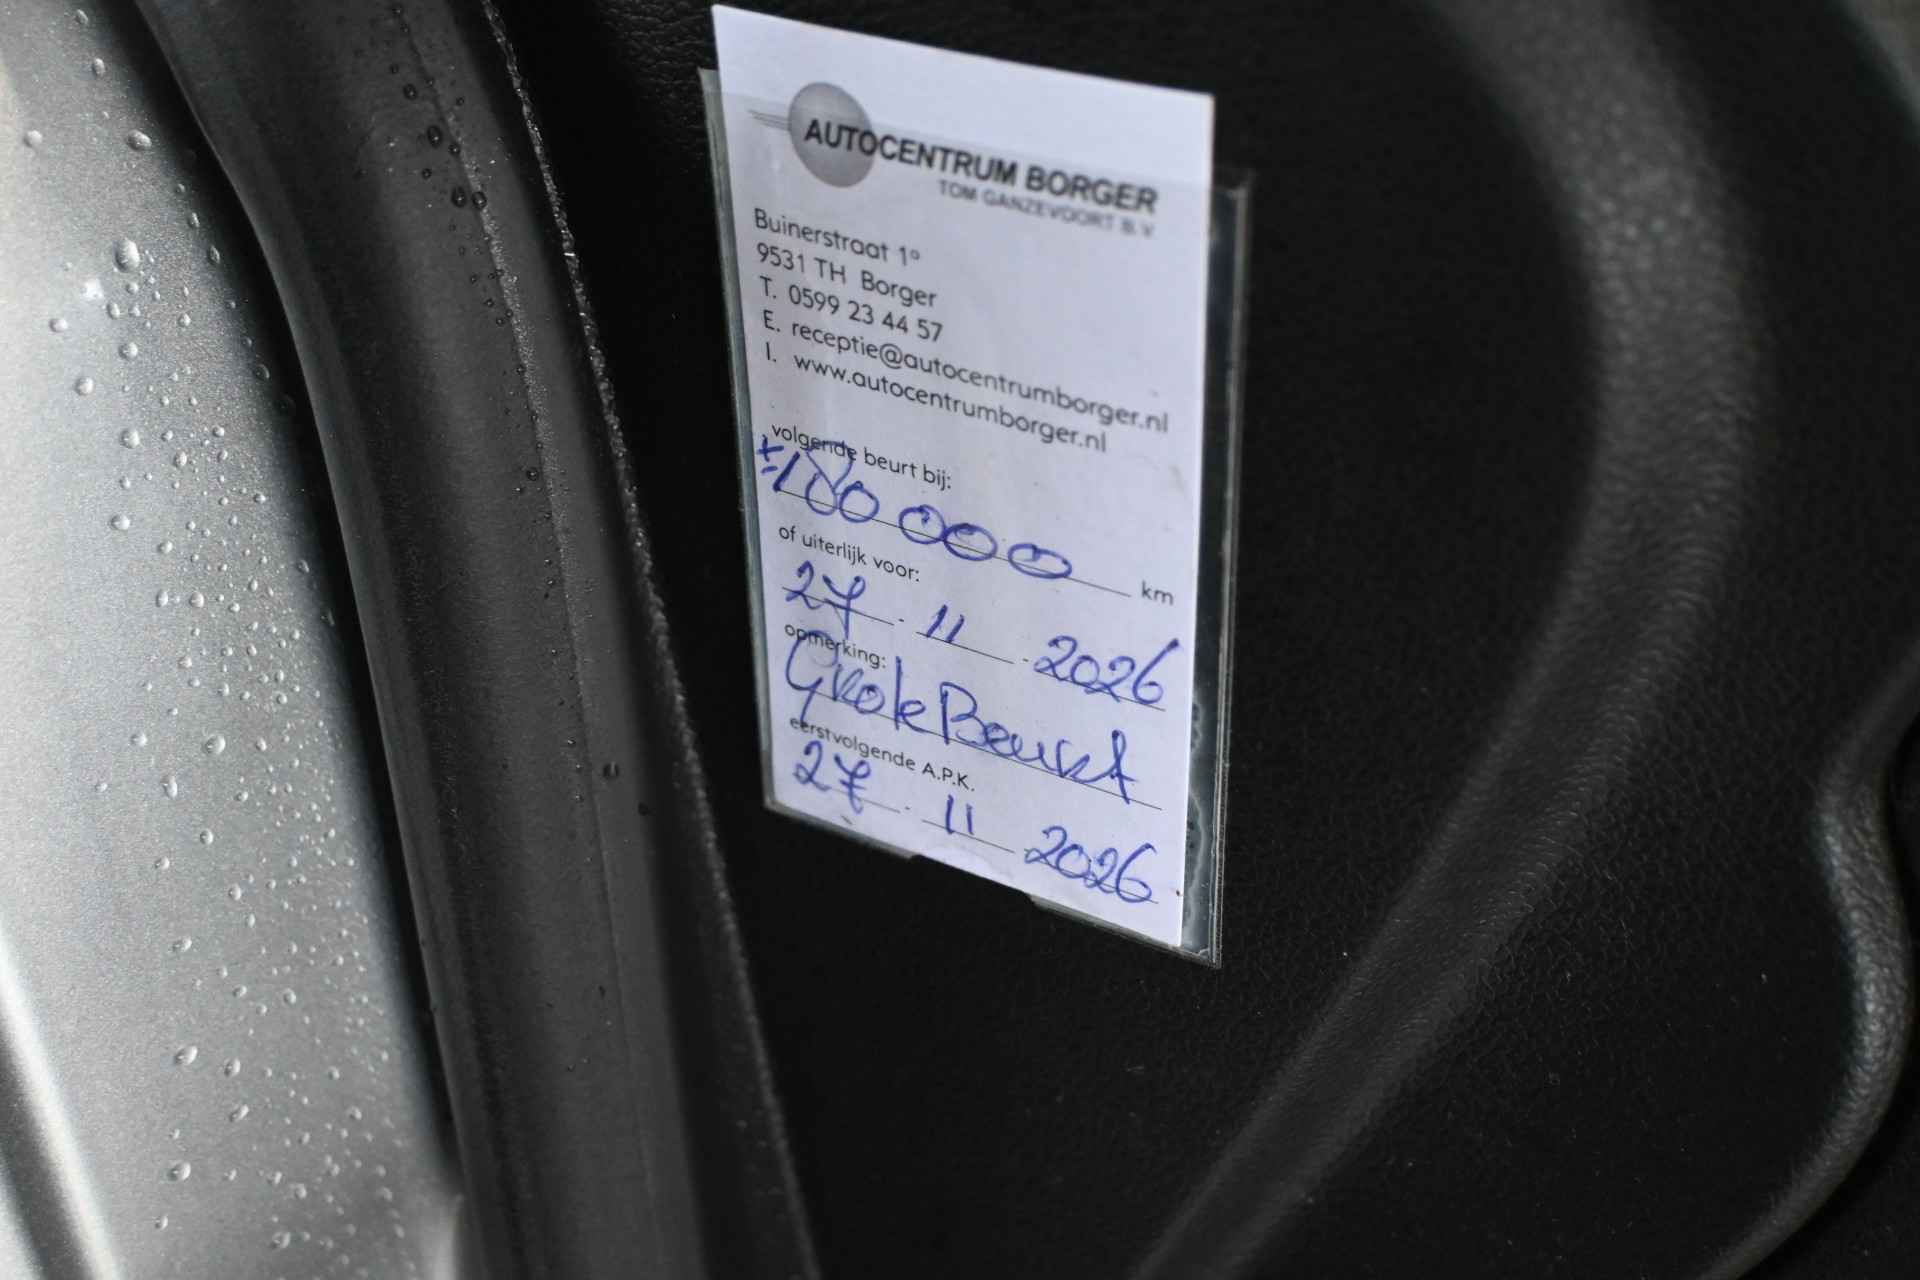 AUTOCENTRUM BORGER
TOM GANZEVOORT B.V.
Buinerstraat 1°
9531 TH Borger
T. 0599 23 44 57
E. receptie@autocentrumborger.nl
I. www.autocentrumborger.nl
volgende beurt bij:
±180 000 km
of uiterlijk voor:
27 - 11 - 2026
opmerking:
Grote Beurt
eerstvolgende A.P.K.
27 - 11 - 2026